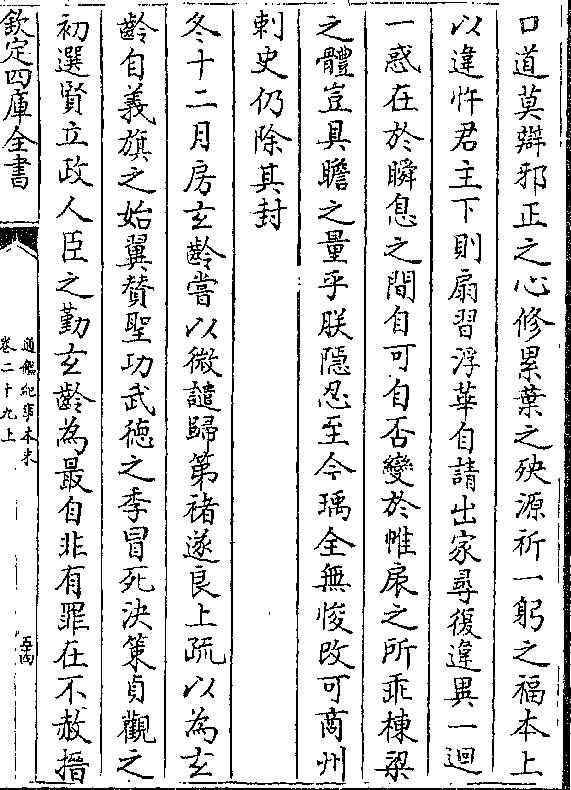 口道莫辯邪正之心修累葉之殃源祈一躬之福本上
以違忤君主下則扇習浮華自請出家尋復違異一迴
一惑在於瞬息之間自可自否變於帷扆之所乖棟梁
之體豈具瞻之量乎朕隱忍至今瑀全無悛改可商州
刺史仍除其封
冬十二月房玄齡嘗以微譴歸第褚遂良上疏以為玄
齡自義旗之始翼贊聖功武德之季冒死決策貞觀之
初選賢立政人臣之勤玄齡為最自非有罪在不赦搢
欽定四庫全書
通鑑紀事本末
卷二十九上
五十四